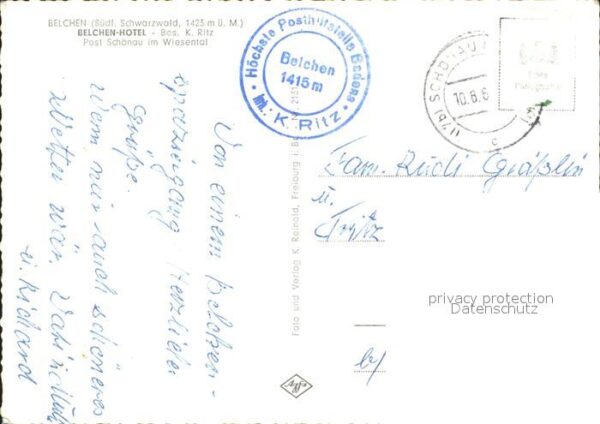 BELCHEN (Südl. Schwarzwald, 1425 m ü. M.)
BELCHEN-HOTEL - Bes. K. Ritz
Post Schönau im Wiesental
Höchste Posthilfstelle Badens
Belchen
1415 m
Inh.: K. Ritz
SCHÖNAU
10.8.6
c
Von einem Belchen-
spaziergang herzliche
Grüße.
Wenn nur auch schöneres
Wetter wär.
u. Richard
Foto und Verlag K. Reinold, Freiburg i. B
Fam. Rudi Gräßlin
u.
Fritz
b/
privacy protection
Datenschutz